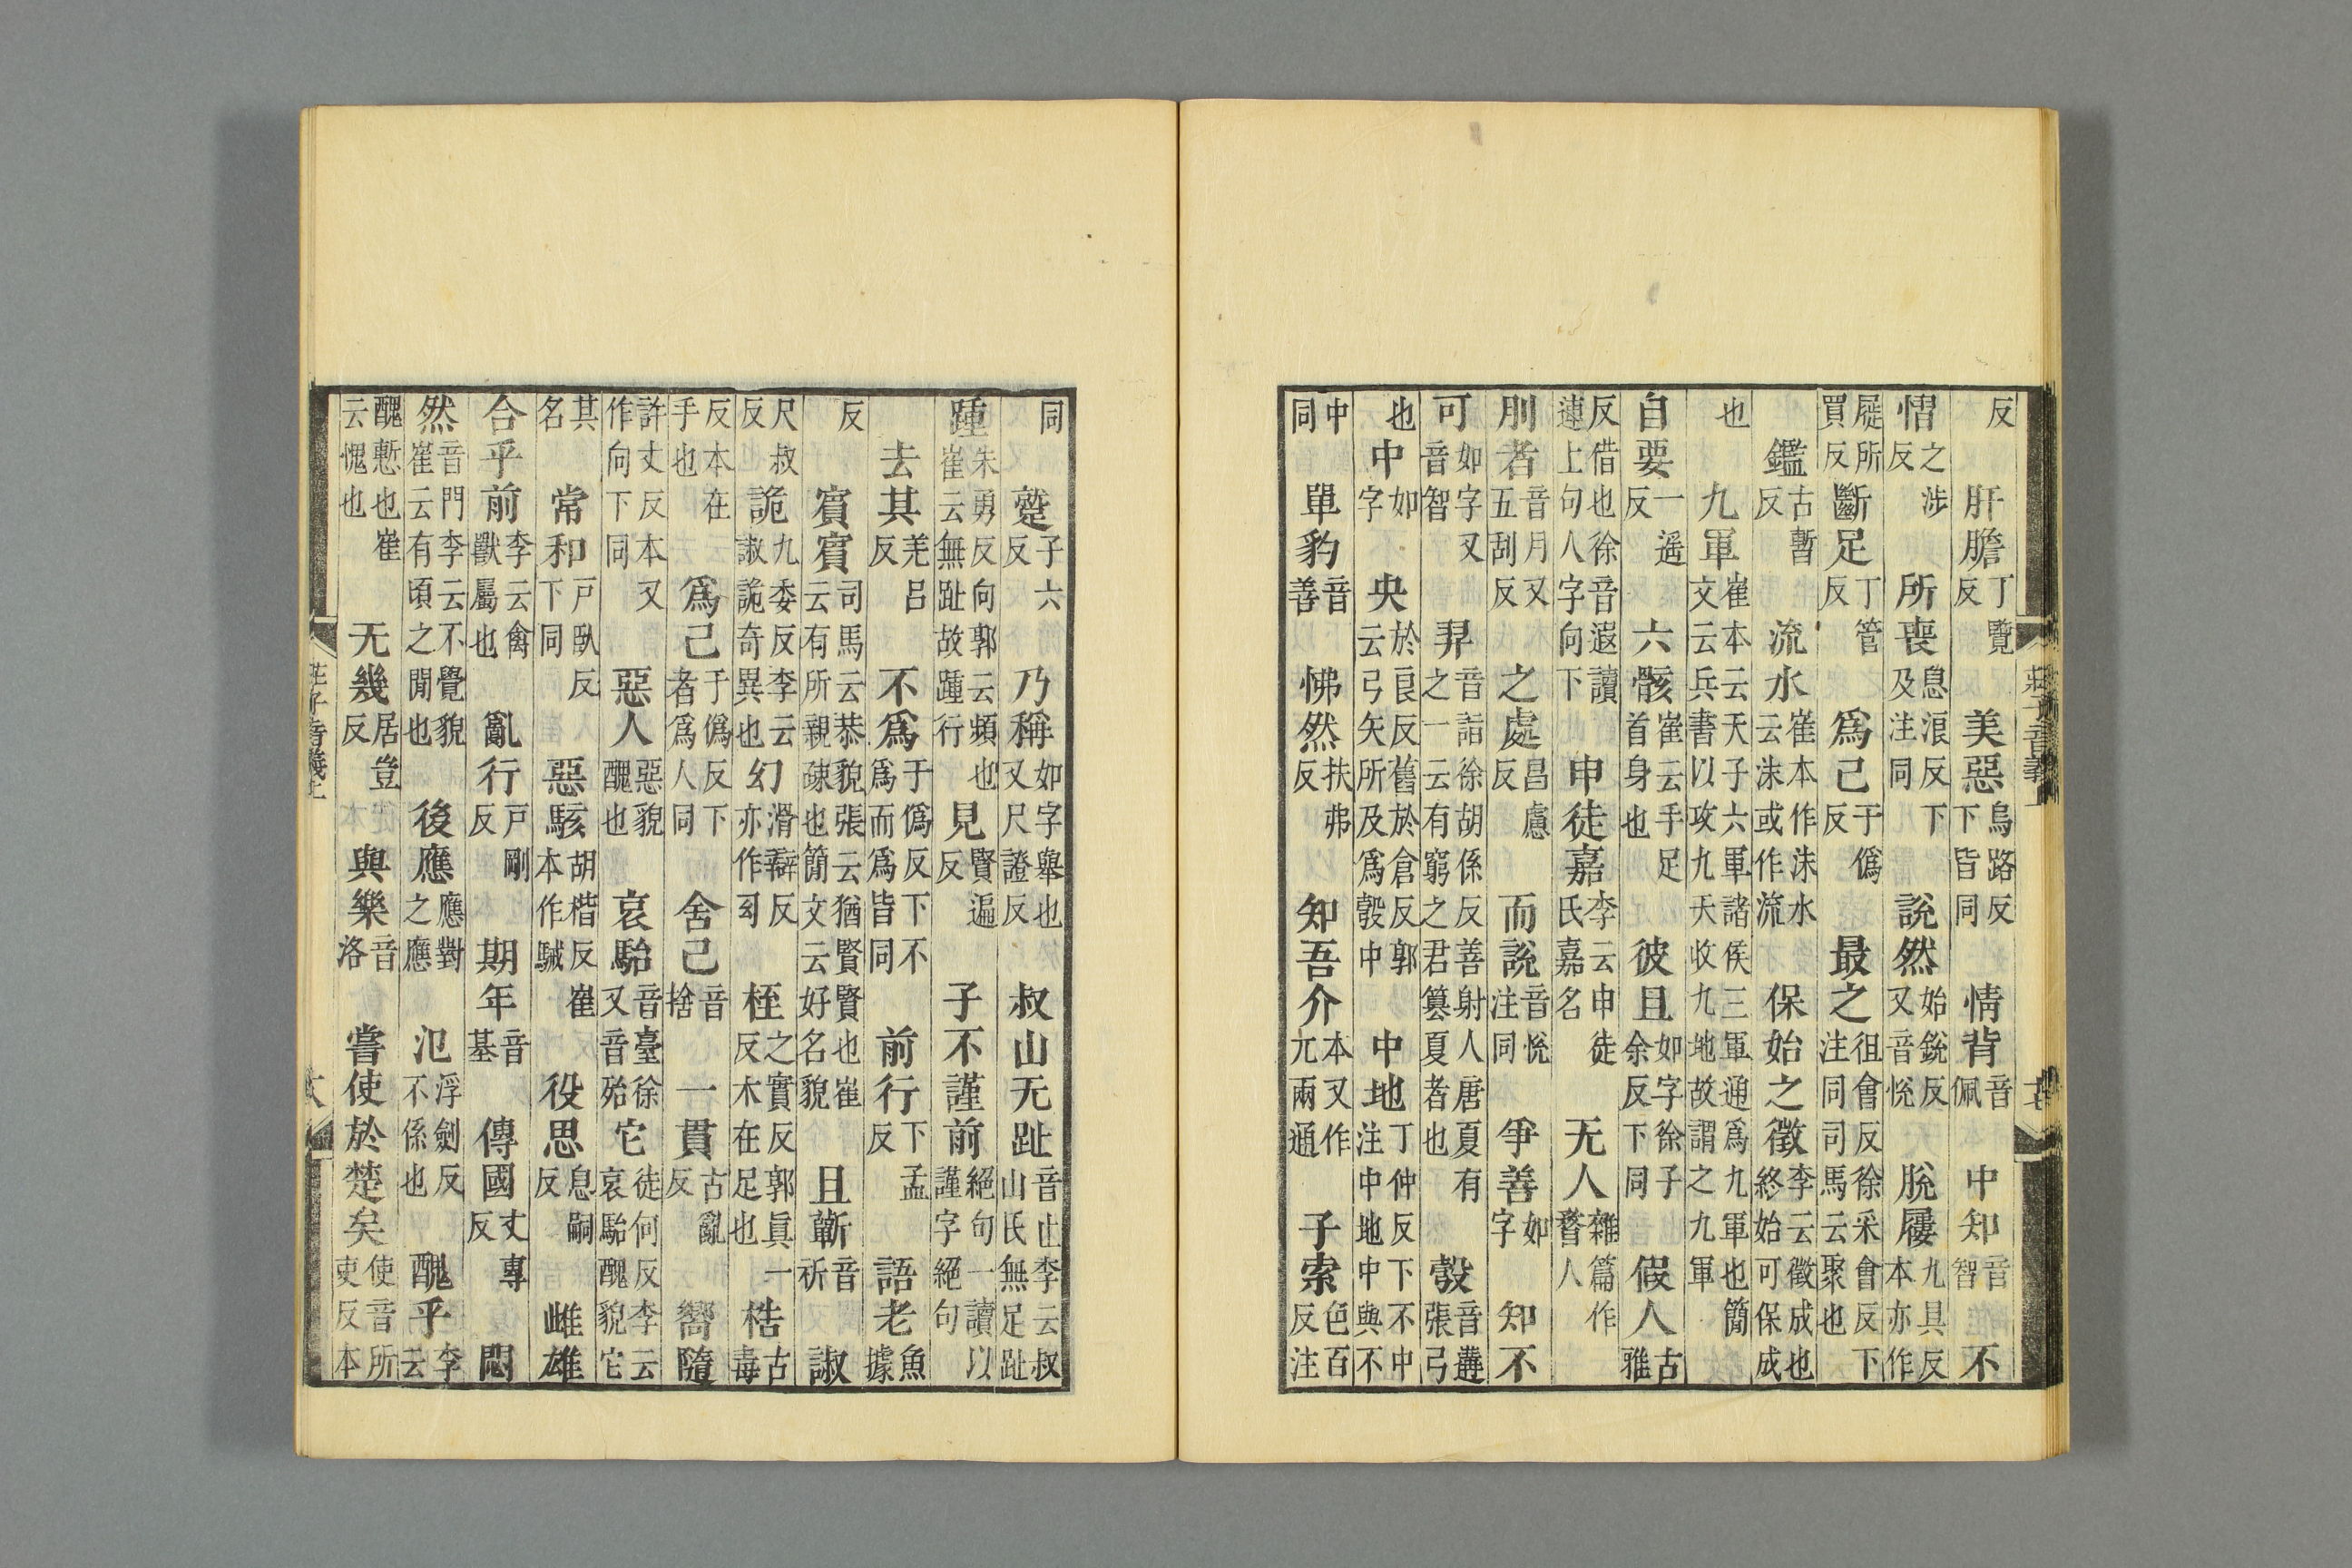 反肝膽丁覽反美惡烏路反下皆同情背音佩中知音智不
慴之涉反所喪息浪反下及注同說然始銳反又音悅脫屨九具反本亦作
屣所買反斷足丁管反爲己于僞反最之徂會反徐采會反下注同司馬云聚也
鑑古暫反流水崔本作沬水云沬或作流保始之徵李云徵成也終始可保成
也九軍崔本云天子六軍諸侯三軍通爲九軍也簡文云兵書以攻九天收九地故謂之九軍
自要一遥反六骸崔云手足首身也彼且如字徐子余反下同假人古雅
反借也徐音遐讀連上句人字向下申徒嘉李云申徒氏嘉名无人雜篇作瞀人
刖者音月又五刮反之處昌慮反而說音悅注同爭善如字知不
可如字又音智羿音詣徐胡係反善射人唐夏有之一云有窮之君篡夏者也彀音遘張弓
也中如字央於良反舊於倉反郭云弓矢所及爲彀中中地丁仲反下不中注中地中與不
中同單豹音善怫然扶弗反知吾介本又作兀兩通子索色百反注
同蹵子六反乃稱如字舉也又尺證反叔山无趾音止李云叔山氏無足趾
踵朱勇反向郭云頻也崔云無趾故踵行見賢遍反子不謹前絕句一讀以謹字絕句
去其羌呂反不爲于僞反下不爲而爲皆同前行下孟反語老魚據
反賓賓司馬云恭貌張云猶賢賢也崔云有所親疎也簡文云好名貌且蘄音祈諔
尺叔反詭九委反李云諔詭奇異也幻滑辯反亦作桎之實反郭眞一反木在足也梏古毒
反本在手也爲己于僞反下者爲人同舍己音捨一貫古亂反嚮隨
許丈反本又作向下同惡人惡貌醜也哀駘音臺徐又音殆它徒何反李云哀駘醜貌它
其名常和戶臥反下同惡駭胡楷反崔本作駴役思息嗣反雌雄
合乎前李云禽獸屬也亂行戶剛反期年音基傳國丈專反悶
然音門李云不覺貌崔云有頃之閒也後應應對之應氾浮劍反不係也醜乎李云
醜慙也崔云愧也无幾居豈反與樂音洛嘗使於楚矣使音所吏反本
莊子音義上